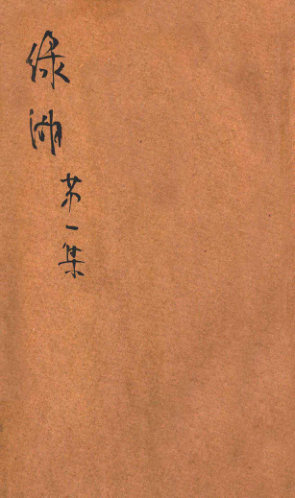 绿湖第一集